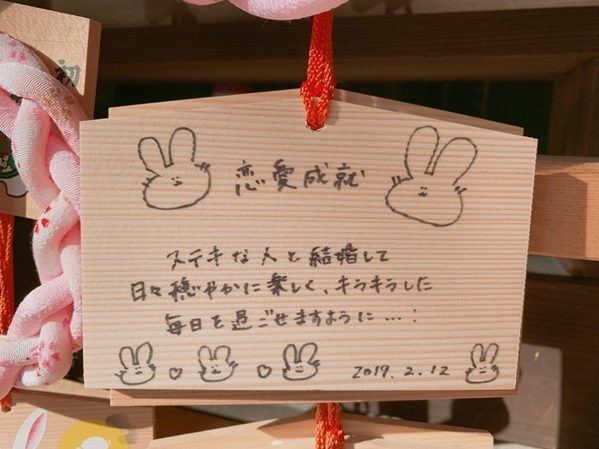 恋愛成就
ステキな人と結婚して
日々穏やかに楽しく、キラキラした
毎日を過ごせますように…!
2019.2.12
初